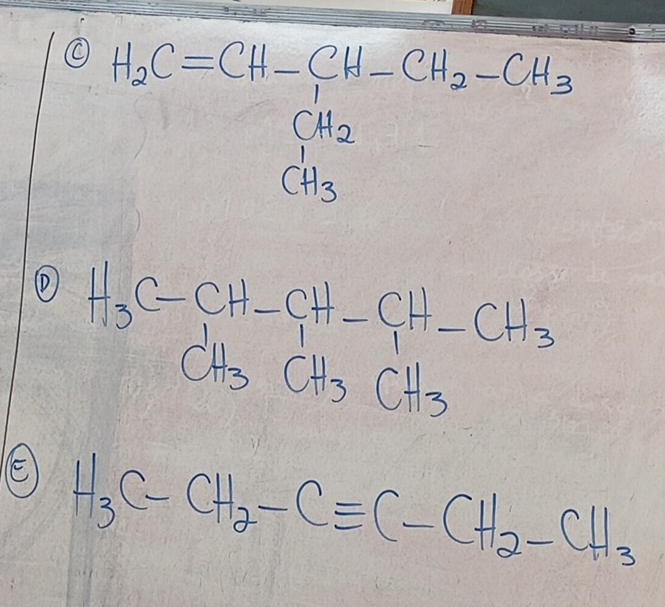 Ⓒ H₂C=CH–CH–CH₂–CH₃
CH₂
CH₃
Ⓓ H₃C–CH–CH–CH–CH₃
CH₃ CH₃ CH₃
Ⓔ H₃C–CH₂–C≡C–CH₂–CH₃